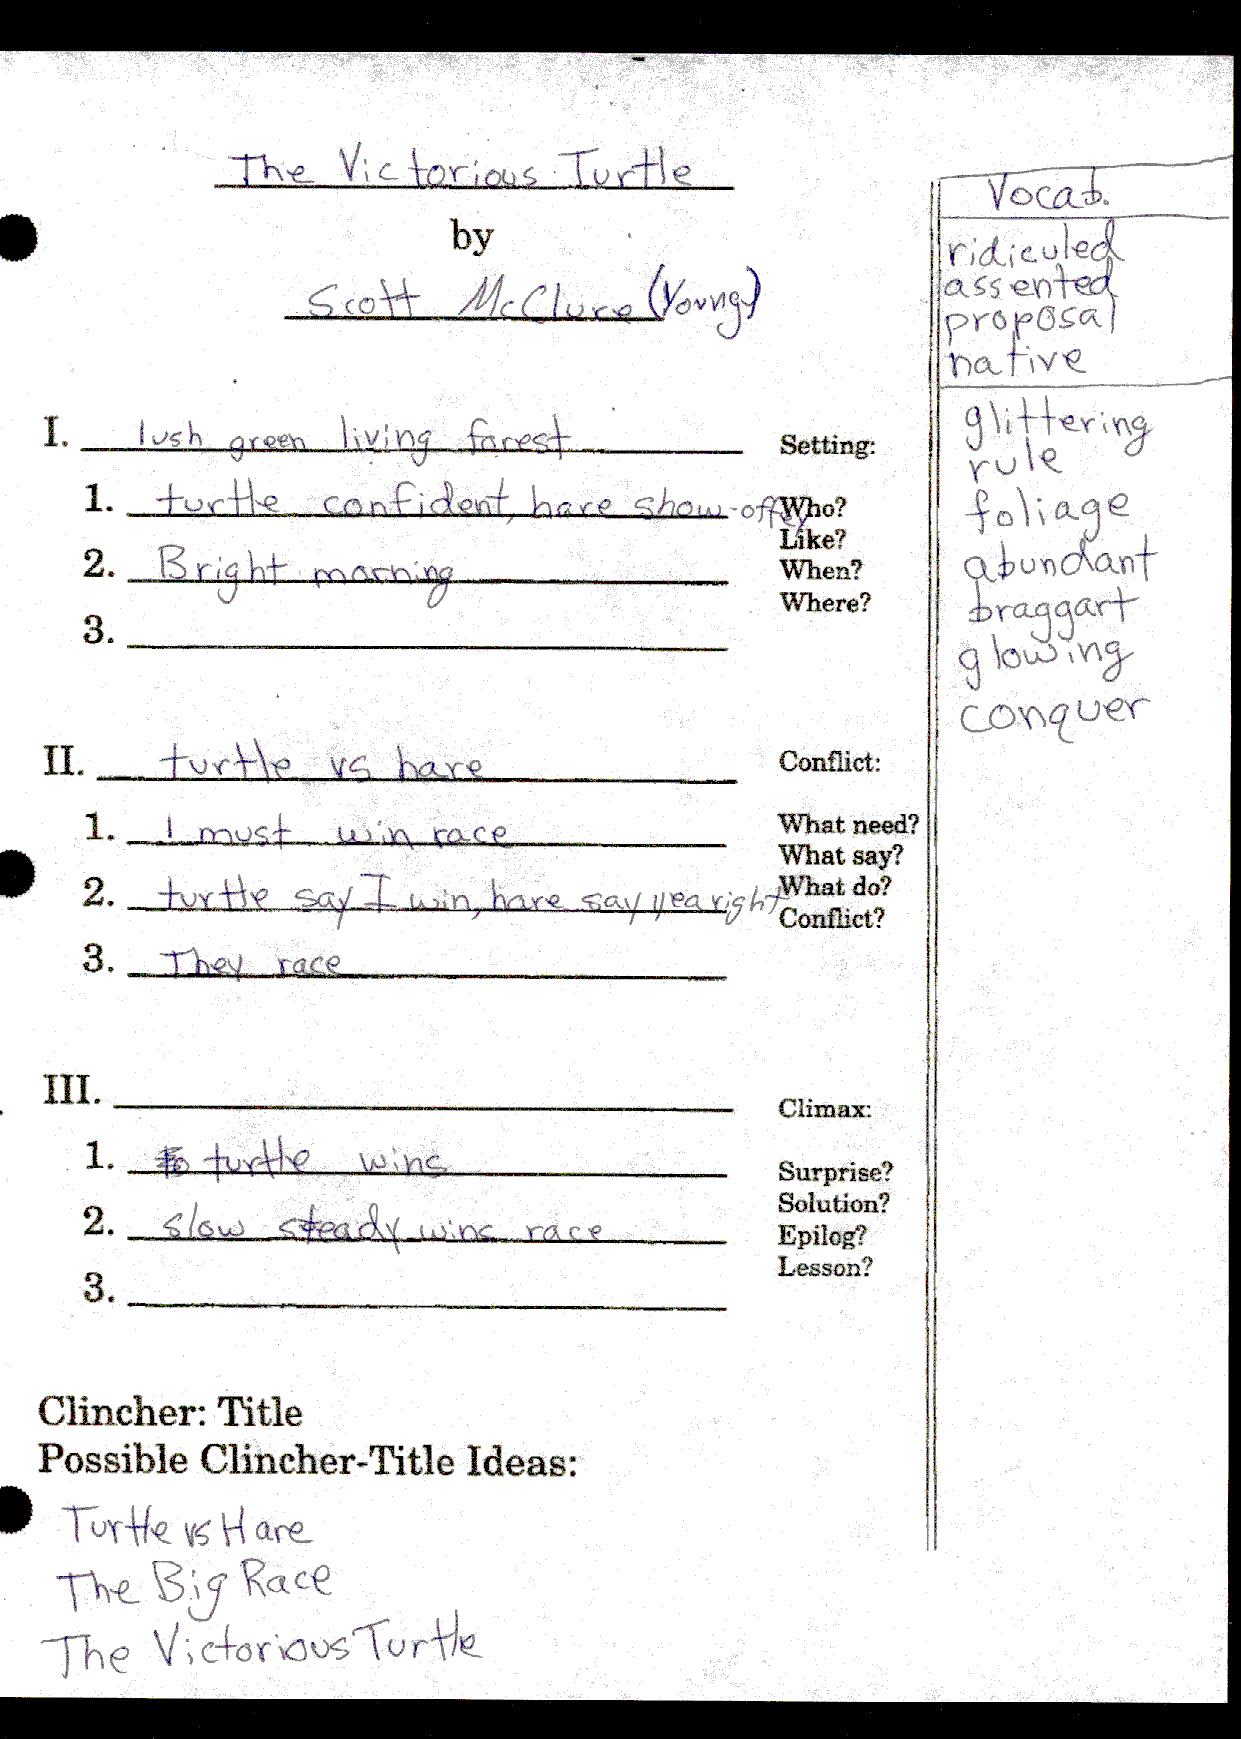 The Victorious Turtle
by
Scott McClure (Young)
I. lush green living forest
1. turtle confident, hare show-offey
2. Bright morning
3.
Setting:
Who?
Like?
When?
Where?
II. turtle vs hare
1. I must win race
2. turtle say I win, hare say yea right
3. They race
Conflict:
What need?
What say?
What do?
Conflict?
III.
1. turtle wins
2. slow steady wins race
3.
Climax:
Surprise?
Solution?
Epilog?
Lesson?
Clincher: Title
Possible Clincher-Title Ideas:
Turtle vs Hare
The Big Race
The Victorious Turtle
Vocab.
ridiculed
assented
proposal
native
glittering
rule
foliage
abundant
braggart
glowing
conquer